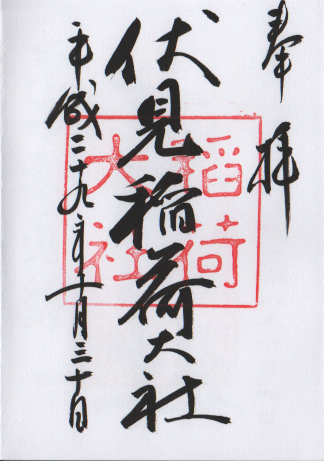 奉拝
伏見稲荷大社
稲荷大社
平成二十九年十月三十日